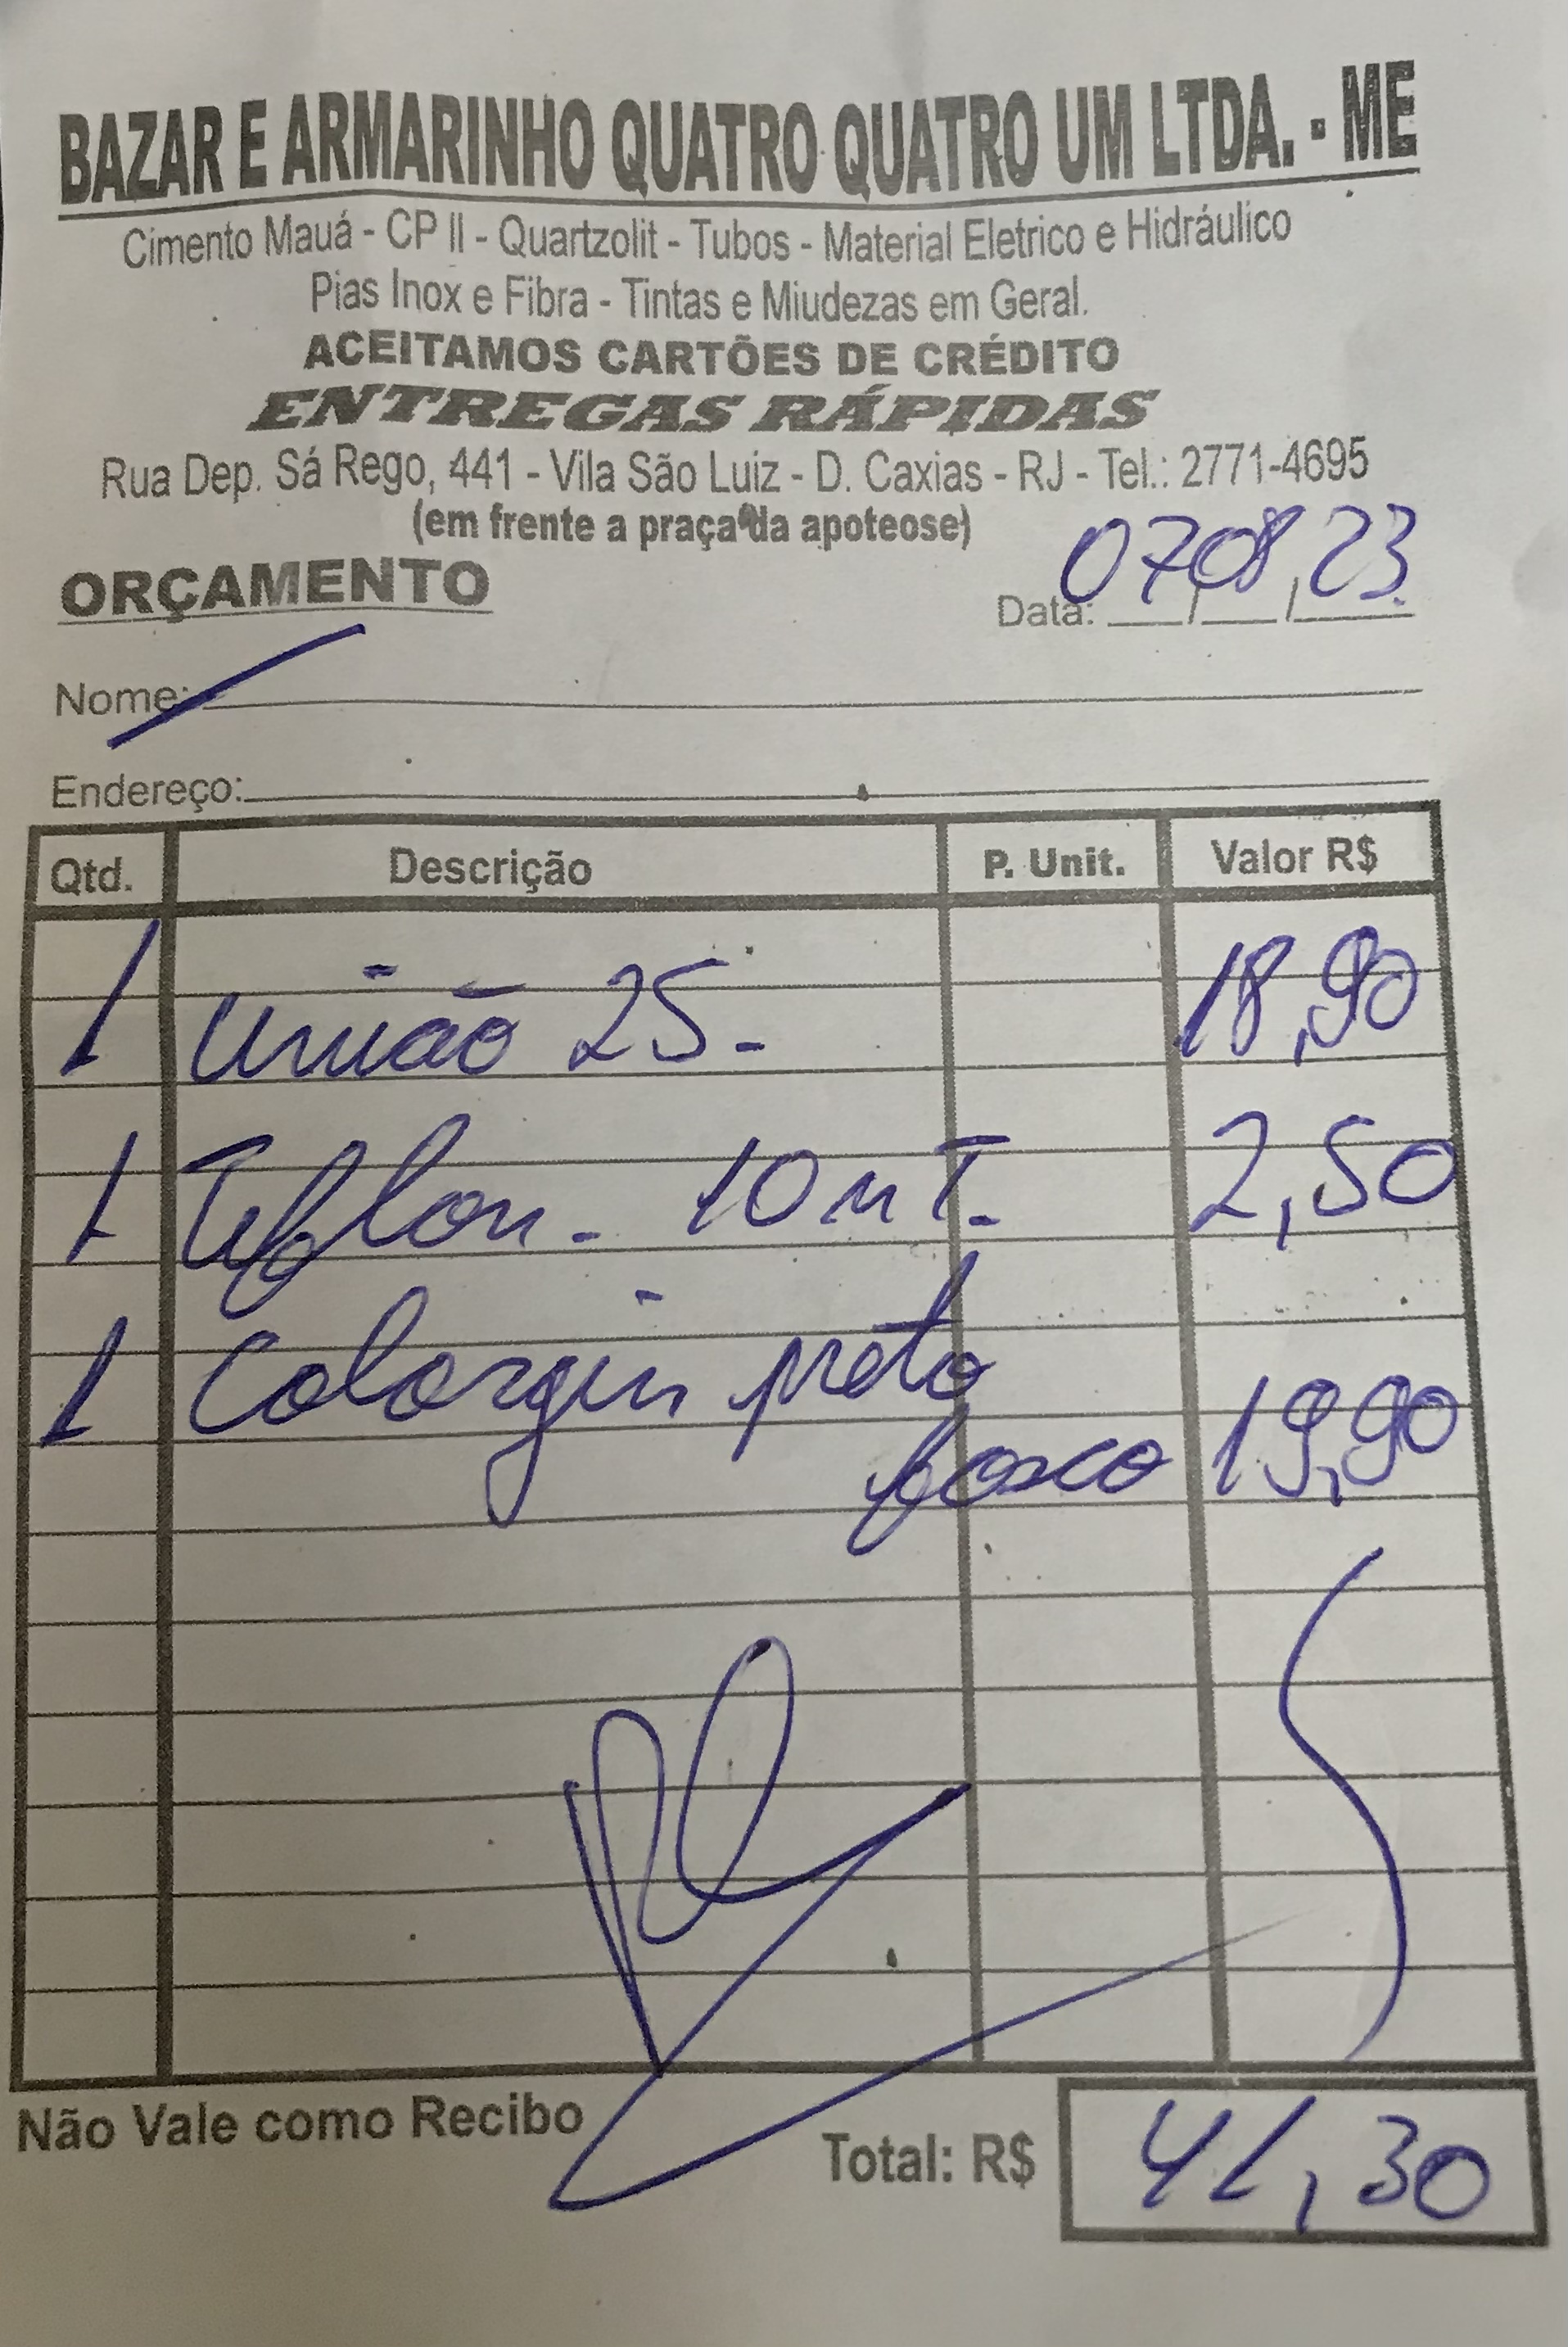 BAZAR E ARMARINHO QUATRO QUATRO UM LTDA. - ME
Cimento Mauá - CP II - Quartzolit - Tubos - Material Eletrico e Hidráulico
Pias Inox e Fibra - Tintas e Miudezas em Geral.
ACEITAMOS CARTÕES DE CRÉDITO
ENTREGAS RÁPIDAS
Rua Dep. Sá Rego, 441 - Vila São Luiz - D. Caxias - RJ - Tel.: 2771-4695
(em frente a praça da apoteose)
ORÇAMENTO Data: 07/08/23
Nome:
Endereço:
Qtd. Descrição P. Unit. Valor R$
1 União 25. 18,90
1 Teflon. 10 MT. 2,50
1 Colorgin preto
fosco 19,90
Não Vale como Recibo
Total: R$ 41,30